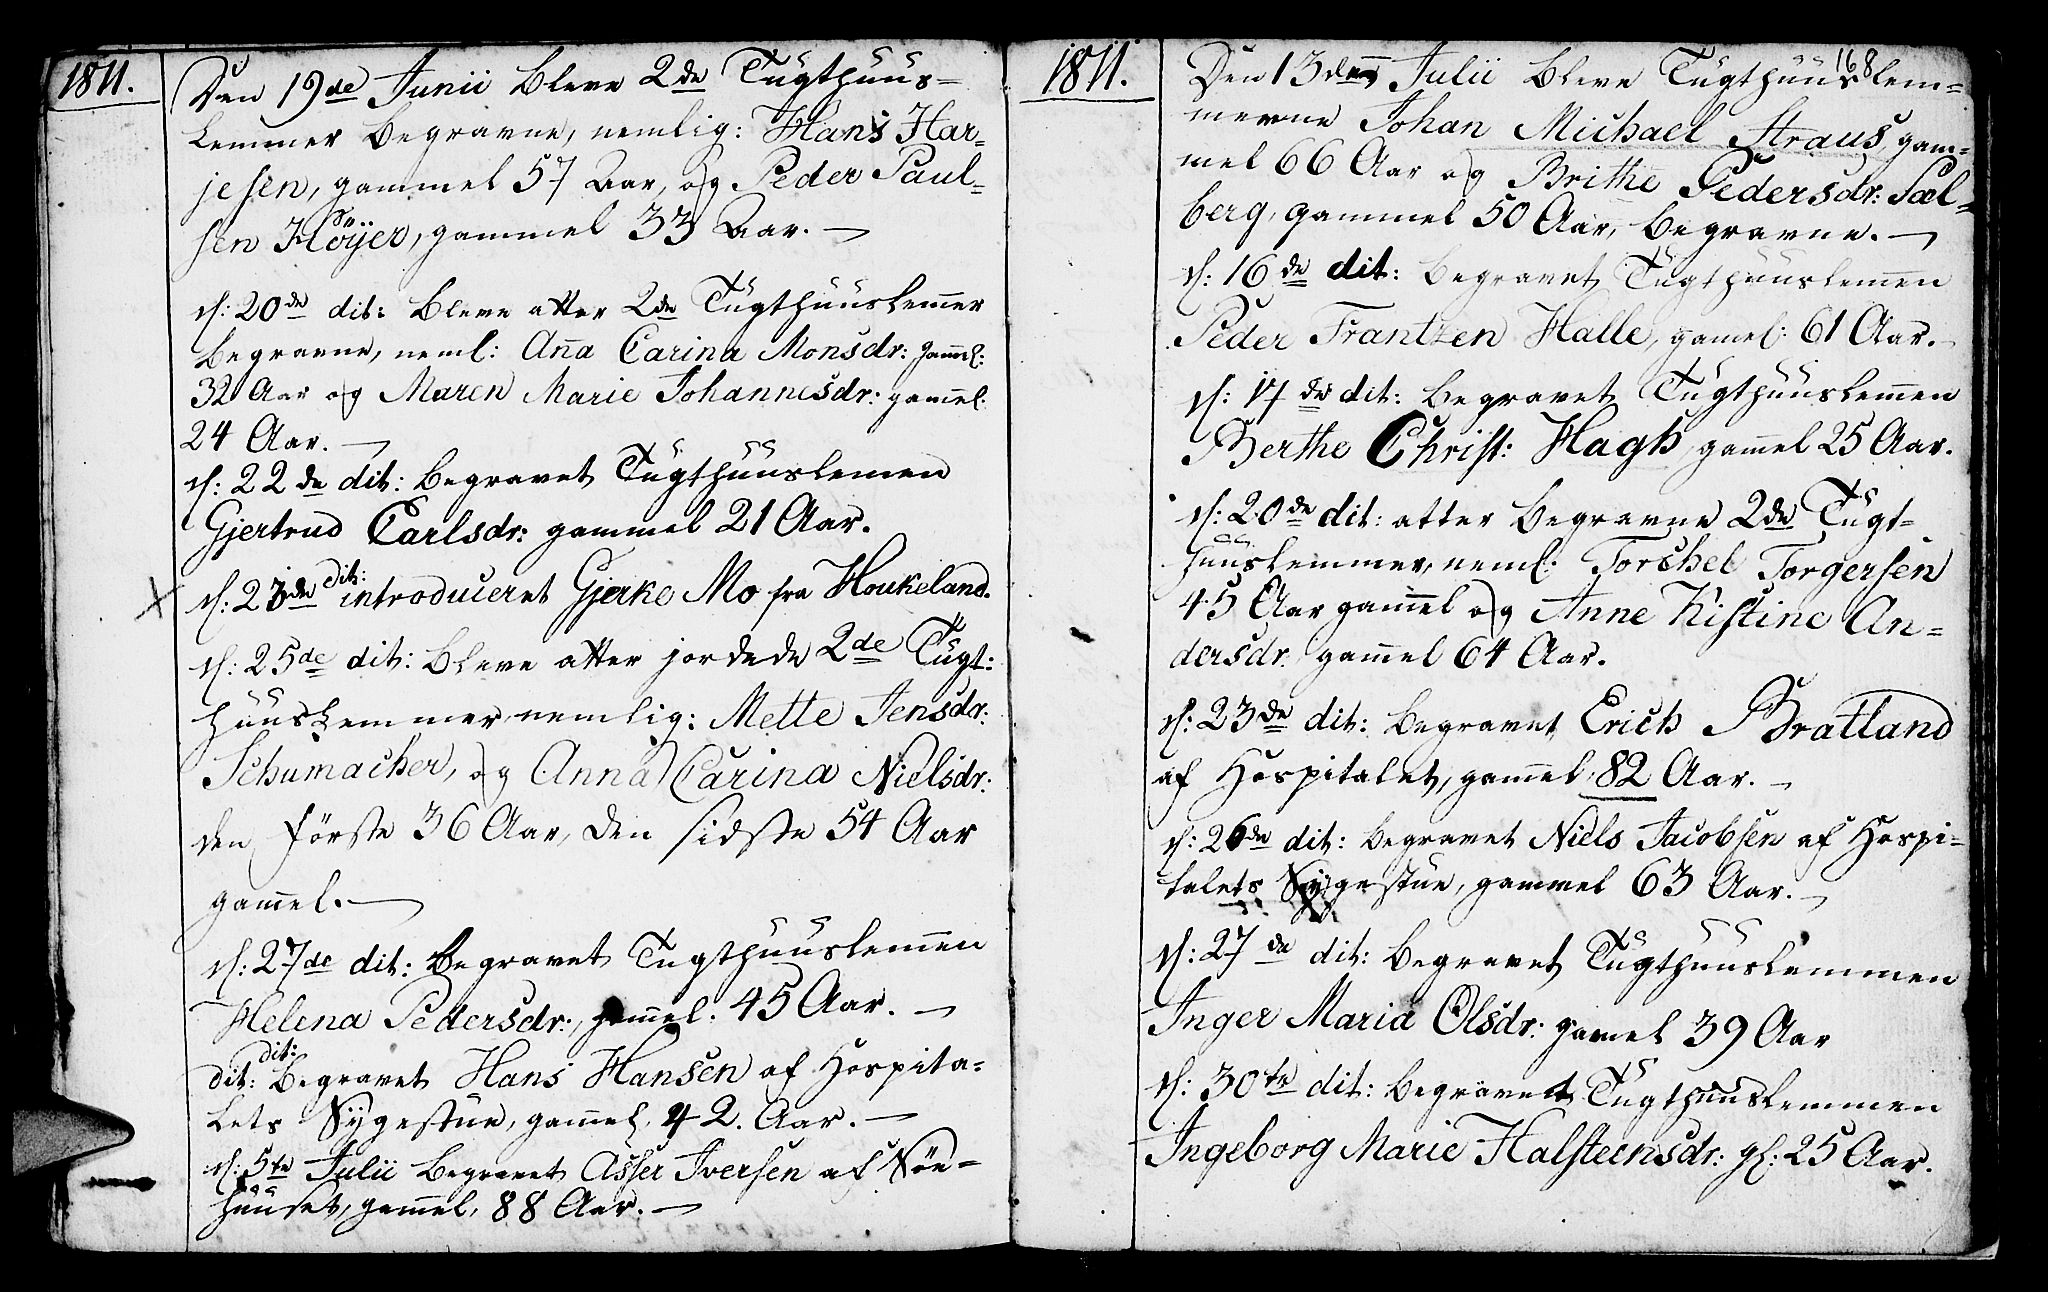 1811.
Den 19de Junii bleve 2de Tugthuus-
Lemmer begravne, nemlig: Hans Har-
jesen, gammel 57 Aar, og Peder Paul-
sen Höyer, gammel 33 Aar. —
d: 20de dit: bleve atter 2de Tugthuuslem̄er
begravne, neml: An̄a Carina Monsdr: gam̄el:
32 Aar og Maren Marie Johannesdr: gam̄el
24 Aar. —
d: 22de dit: begravet Tugthuuslem̄en
Gjertrud Carlsdr: gammel 21 Aar.
d: 23de dit: introduceret Gjerke Mo fra Houkeland.
d: 25de dit: bleve atter jordede 2de Tugt:
huuslemmer, nemlig: Mette Jensdr:
Schumacher, og Anna Carina Nielsdr:
den förste 36 Aar, den sidste 54 Aar
gam̄el. —
d: 27de dit: begravet Tugthuuslem̄en
Helena Pedersdr:, gam̄el: 45 Aar. —
dit: dit: begravet Hans Hansen af Hospita-
lets Sygestue, gam̄el, 42. Aar. —
d: 5te Julii begravet Asser Iversen af
huuset, gam̄el, 88 Aar. —
1811.
168
Den 13den Julii bleve Tugthuuslem-
merne Johan Michael Straus, gam-
mel 66 Aar og Brithe Pedersdr: Sæl-
berg, gammel 50 Aar, begravne. —
d: 16de dit: begravet Tugthuuslem̄en
Peder Frantzen Halle, gam̄el: 61 Aar.
d: 17de dit: begravet Tugthuuslem̄en
Berthe Christ: Hagh, gam̄el 25 Aar.
d: 20de dit: atter begravne 2de Tugt-
huuslemmer, neml: Torchel Torgersen
45 Aar gam̄el og Anne Kistine An-
dersdr: gam̄el 64 Aar.
d: 23de dit: begravet Erich Bratland
af Hospitalet, gam̄el, 82 Aar. —
d: 26de dit: begravet Niels Jacobsen af Hospi-
talets Sygestue, gammel 63 Aar. —
d: 27de dit: begravet Tugthuuslemmen
Inger Maria Olsdr: gam̄el 39 Aar
d: 30te dit: begravet Tugthuuslemmen
Ingeborg Marie Halsteensdr: gl: 25 Aar.